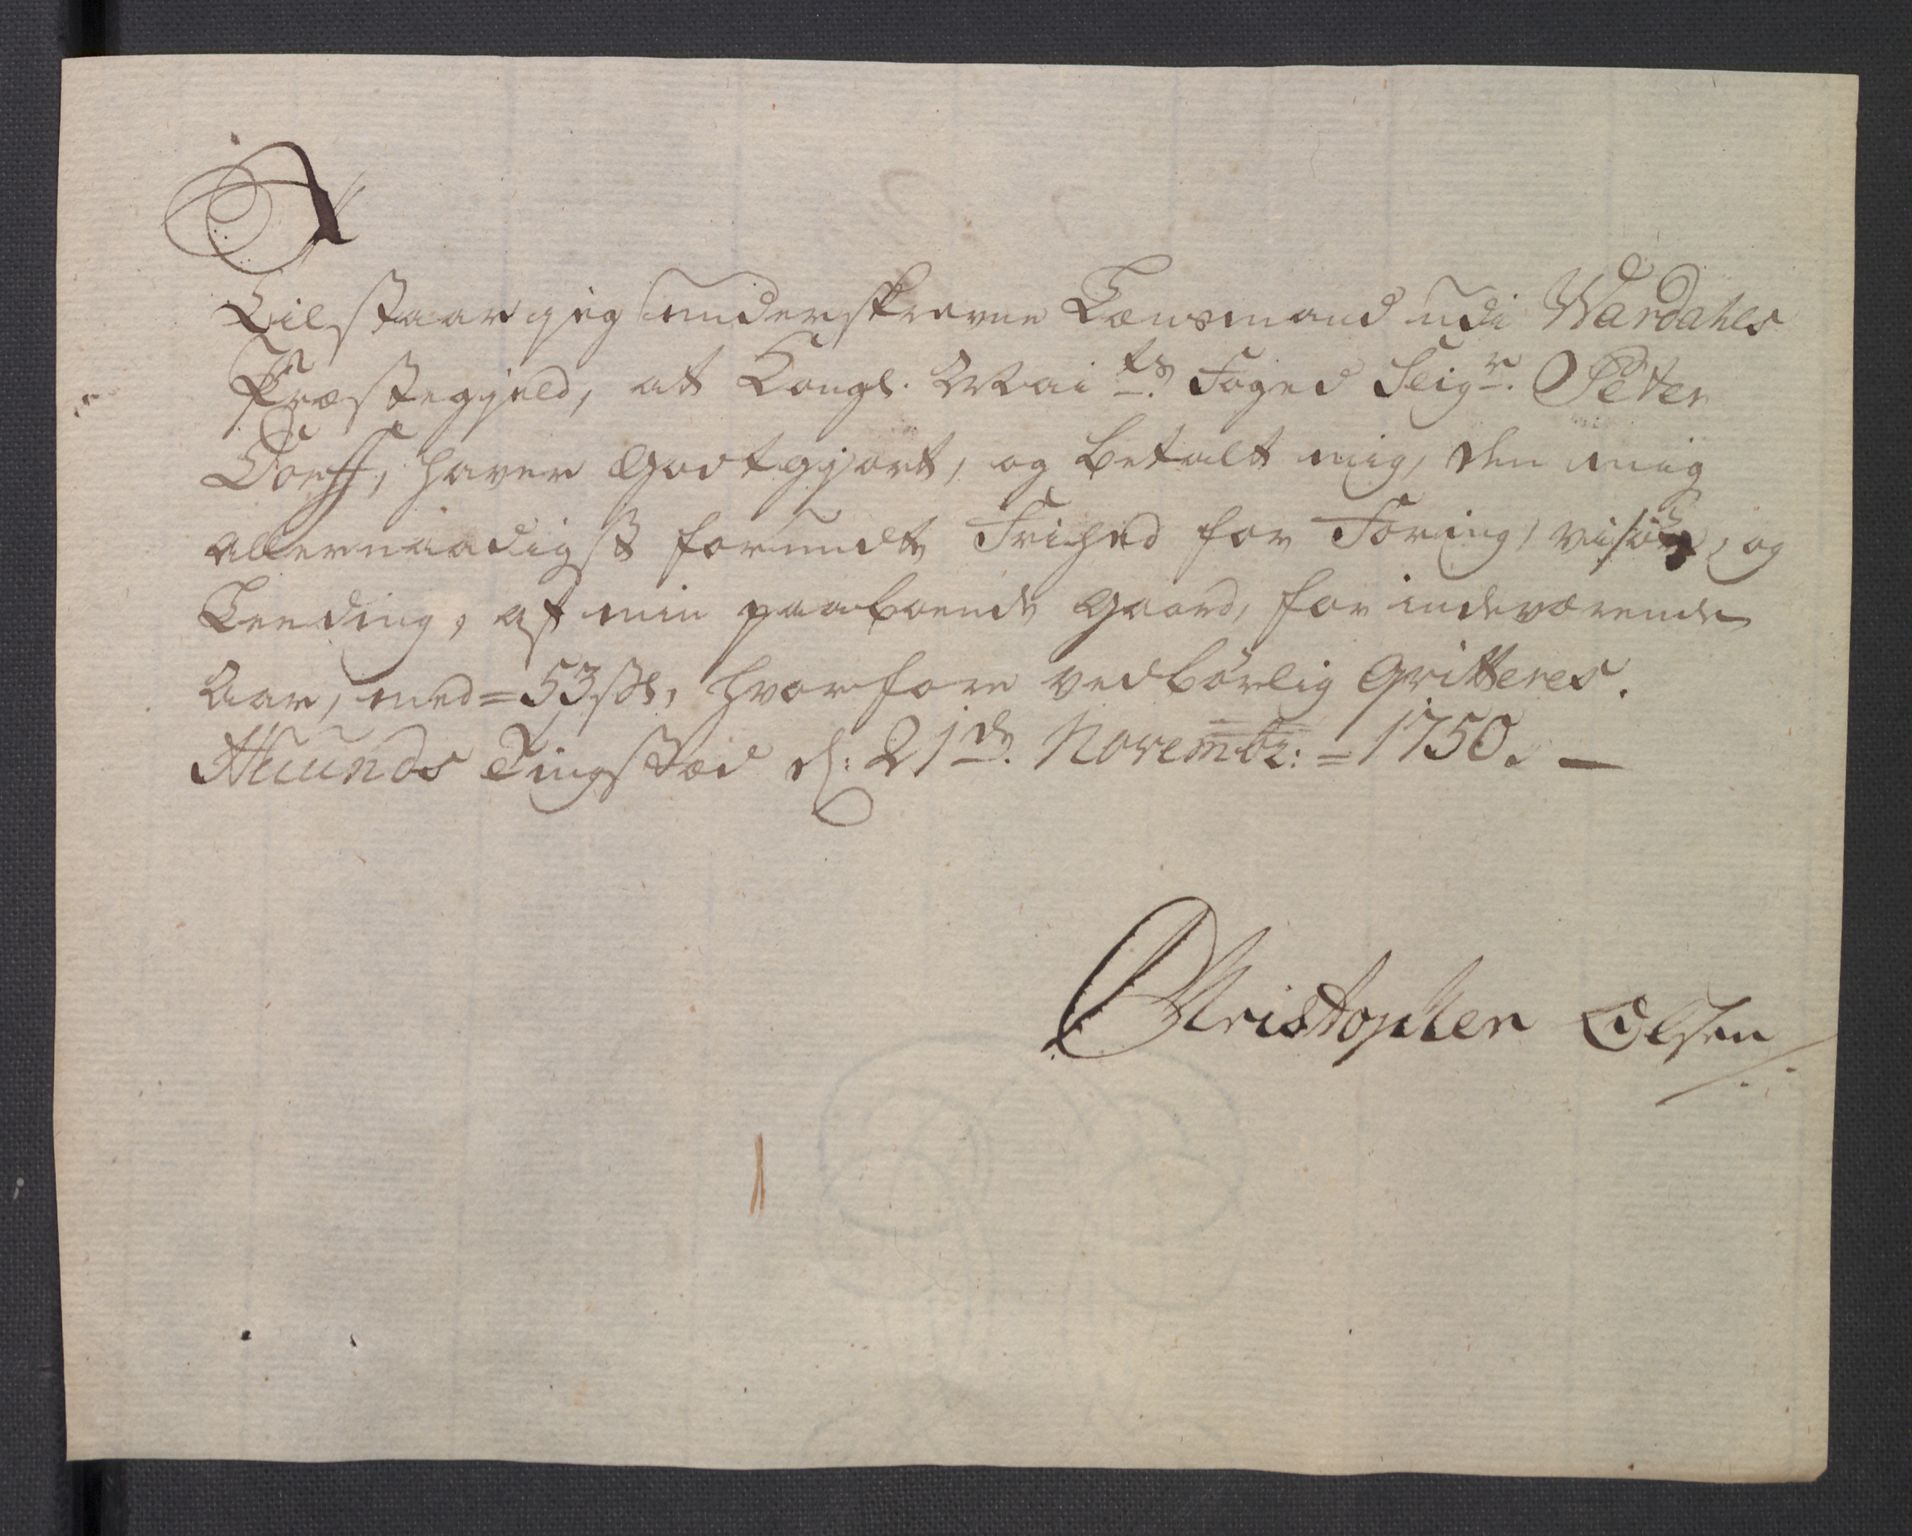 Tilstaar jeg underskrevne Lænsmand udi Wærdahls
Præstegjeld, at Kongl. Mai ts. Foged Seigr. Peter
Dorff, haver Godtgjort, og betalt mig, den mig
allernaadigst forundte Frihed for Foring, og
Leeding, af min paaboende Gaard, for indeværende
Aar, med = 53 sk, hvorfore vedbørlig Qvitteres.
Tingstæd d: 21de. Novembr: = 1750. —
Christopher Olsen